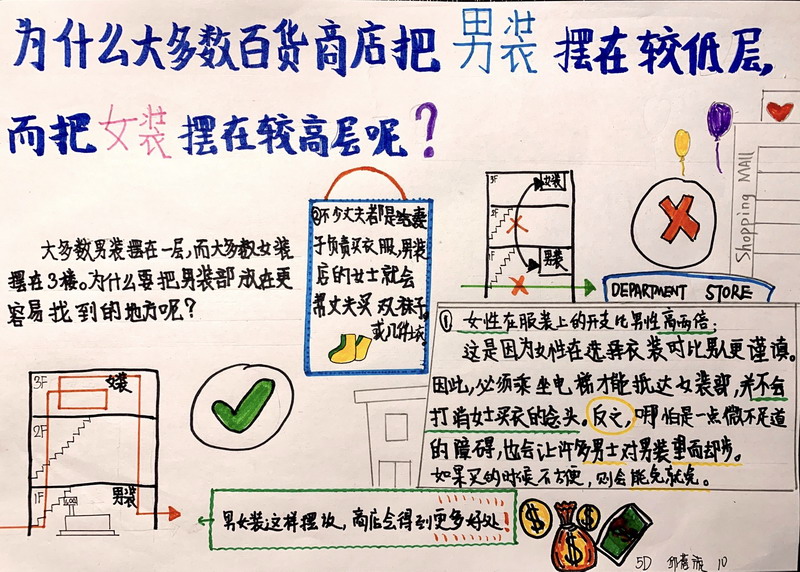 为什么大多数百货商店把男装摆在较低层,
而把女装摆在较高层呢?
大多数男装摆在一层,而大多数女装
摆在3楼。为什么要把男装部放在更
容易找到的地方呢?
②不少丈夫都是给妻
子负责买衣服,男装
店的女士就会
帮丈夫买双袜子
或几件衣。
3F
女装
2F
1F
男装
Shopping MALL
DEPARTMENT STORE
① 女性在服装上的开支比男性高两倍:
这是因为女性在选择衣装时比男人更谨慎。
因此,必须乘坐电梯才能抵达女装部,并不会
打消女士买衣的念头。反之,哪怕是一点微不足道
的障碍,也会让许多男士对男装望而却步。
如果买的时候不方便,则会能免就免。
3F
女装
2F
1F
男装
男女装这样摆放,商店会得到更多好处!
$
$
$
5D
10